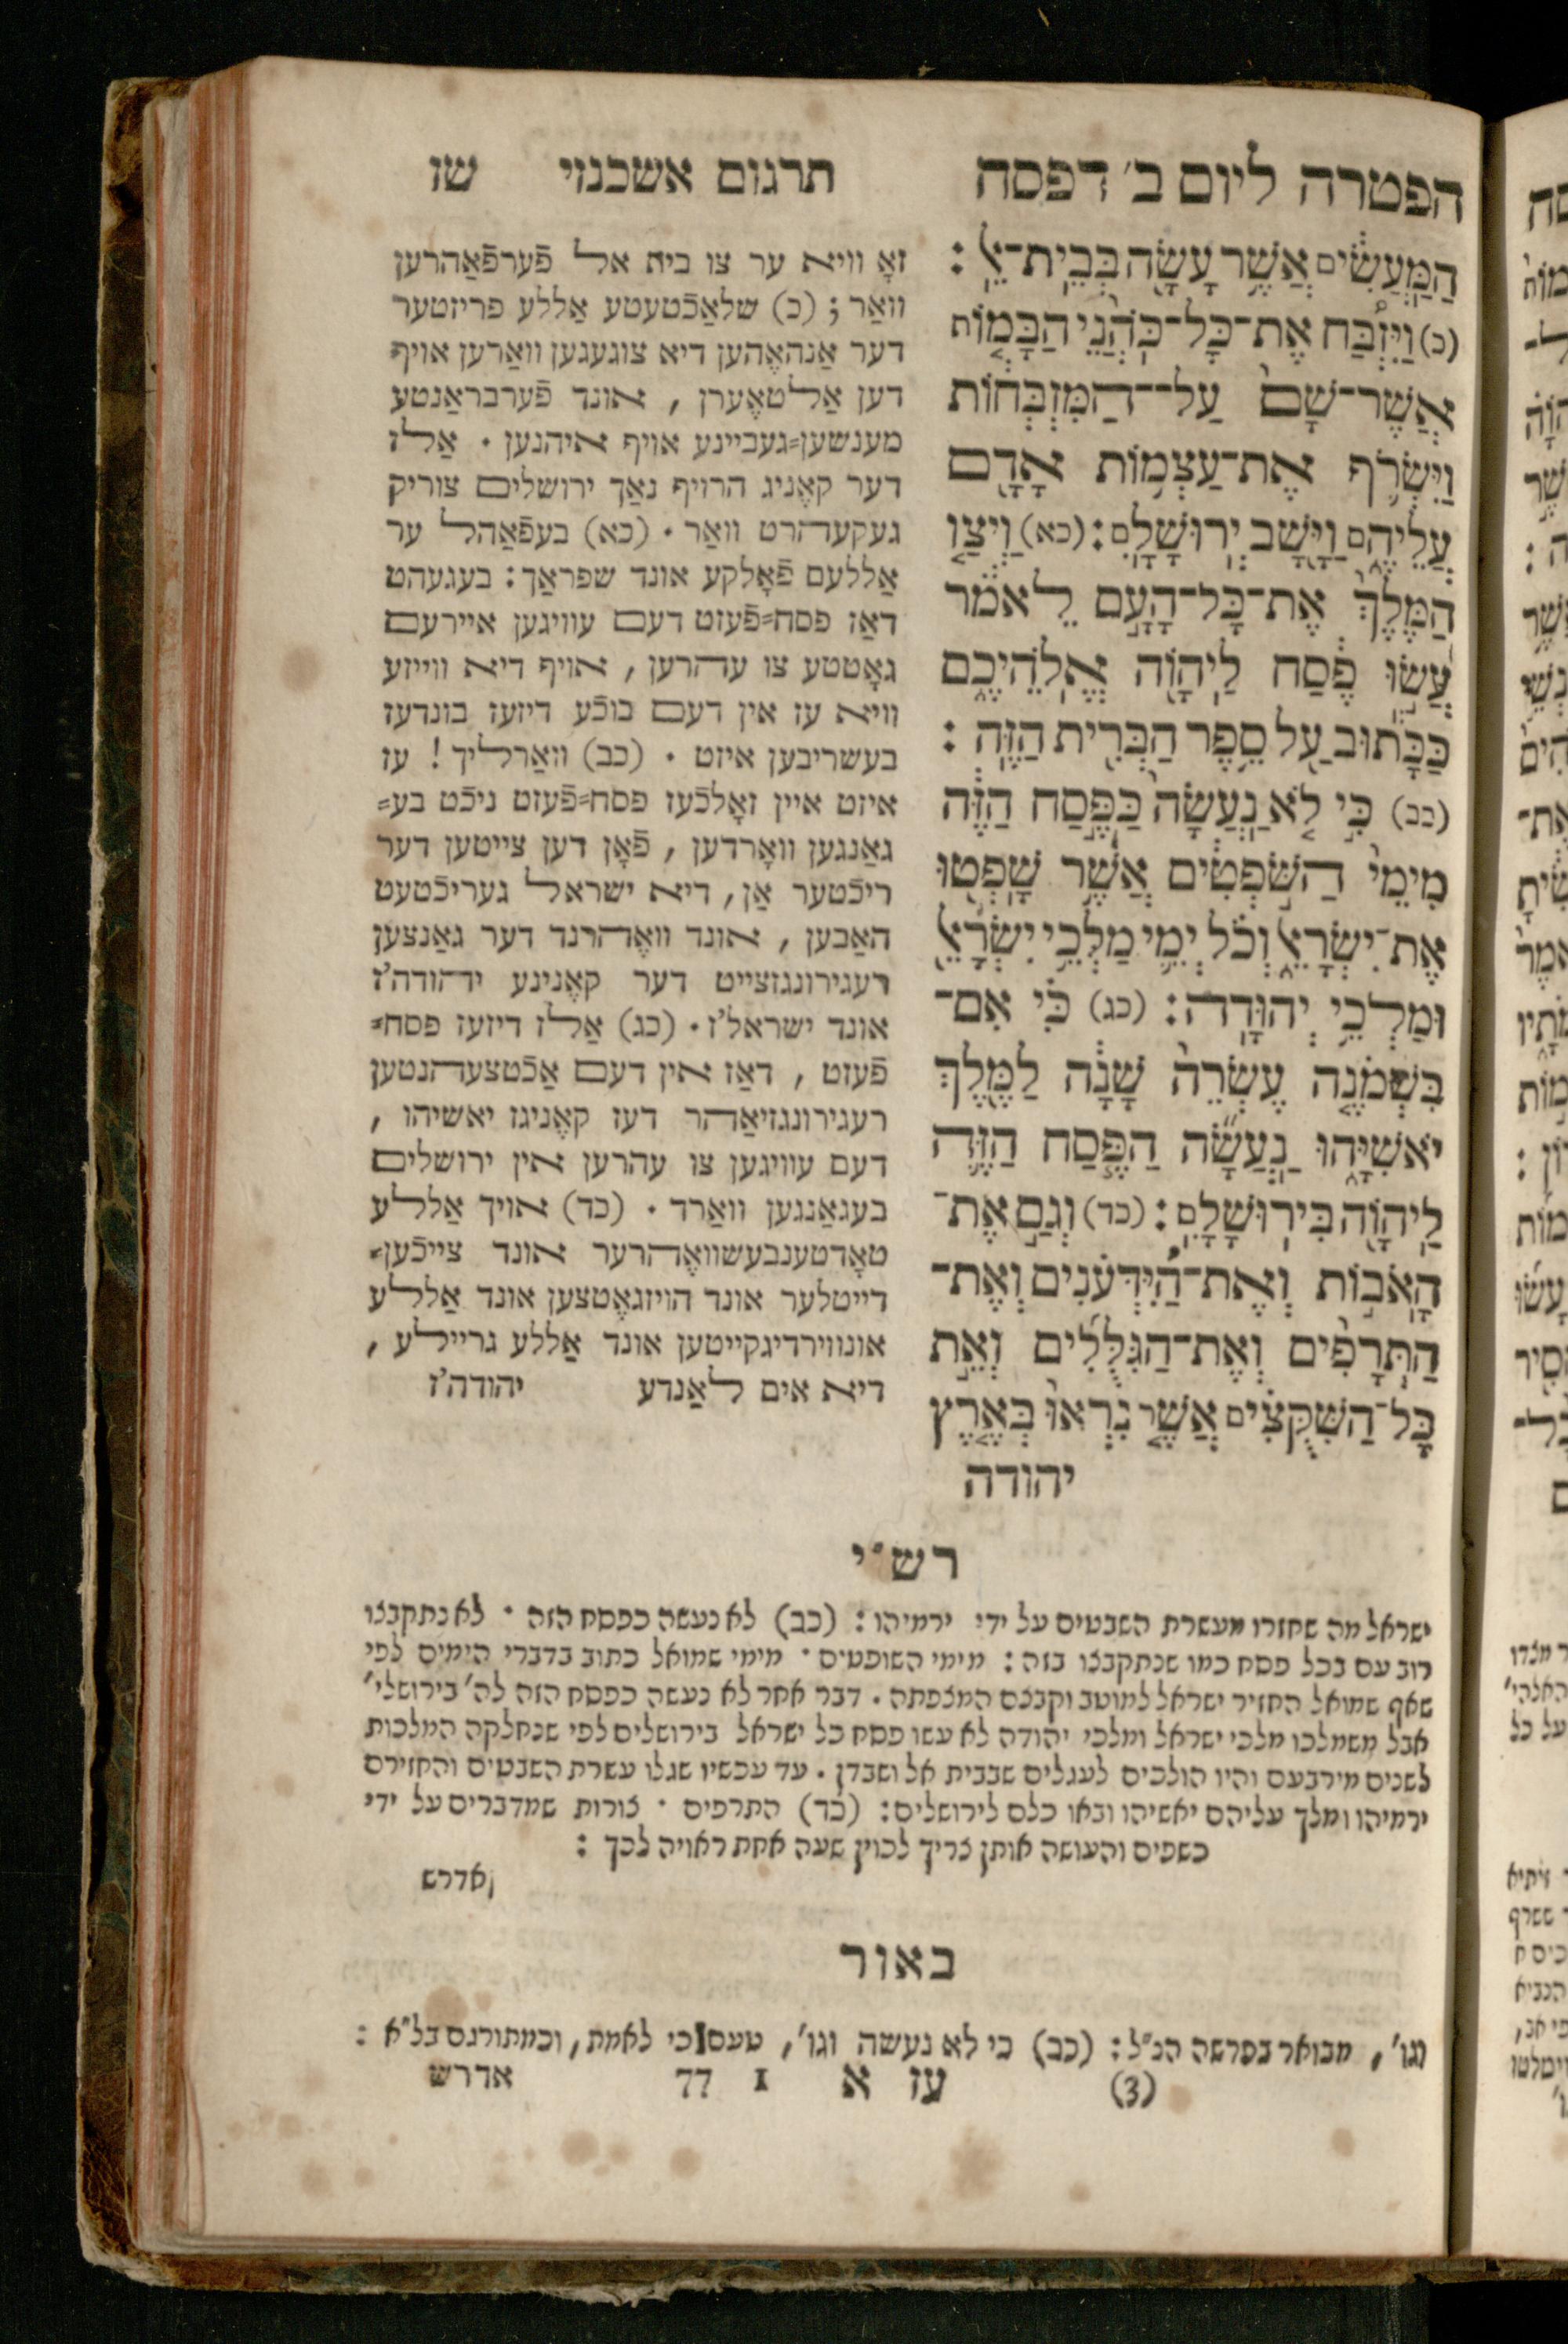 הפטרה ליום ב׳ דפסח
תרגום אשכנזי שז
הַֽמַּעֲשִׂ֔ים אֲשֶׁ֥ר עָשָׂ֖ה בְּבֵֽית־אֵֽל׃
(כ) וַ֠יִּזְבַּח אֶת־כָּל־כֹּהֲנֵ֨י הַבָּמ֤וֹת
אֲשֶׁר־שָׁם֙ עַל־הַֽמִּזְבְּח֔וֹת
וַיִּשְׂרֹ֛ף אֶת־עַצְמ֥וֹת אָדָ֖ם
עֲלֵיהֶ֑ם וַיָּ֖שָׁב יְרֽוּשָׁלִָֽם׃ (כא) וַיְצַ֤ו
הַמֶּ֙לֶךְ֙ אֶת־כָּל־הָעָ֣ם לֵאמֹ֔ר
עֲשׂ֣וּ פֶ֔סַח לַֽיהוָ֖ה אֱלֹֽהֵיכֶ֑ם
כַּכָּת֕וּב עַ֛ל סֵ֥פֶר הַבְּרִ֖ית הַזֶּֽה׃
(כב) כִּ֣י לֹ֤א נַֽעֲשָׂה֙ כַּפֶּ֣סַח הַזֶּ֔ה
מִימֵי֙ הַשֹּׁ֣פְטִ֔ים אֲשֶׁ֥ר שָׁפְט֖וּ
אֶת־יִשְׂרָאֵ֑ל וְכֹ֗ל יְמֵ֛י מַלְכֵ֥י יִשְׂרָאֵ֖ל
וּמַלְכֵ֥י יְהוּדָֽה׃ (כג) כִּ֗י אִם־
בִּשְׁמֹנֶ֤ה עֶשְׂרֵה֙ שָׁנָ֔ה לַמֶּ֖לֶךְ
יֹאשִׁיָּ֑הוּ נַעֲשָׂ֞ה הַפֶּ֧סַח הַזֶּ֛ה
לַיהוָ֖ה בִּירוּשָׁלִָֽם׃ (כד) וְגַ֣ם אֶת־
הָאֹב֣וֹת וְאֶת־הַ֠יִּדְּעֹנִים וְאֶת־
הַתְּרָפִ֨ים וְאֶת־הַגִּלֻּלִ֜ים וְאֵ֣ת
כָּל־הַשִּׁקֻּצִ֗ים אֲשֶׁ֤ר נִרְאוּ֙ בְּאֶ֤רֶץ
יהודה
זאָ וויא ער צו בית אל פֿערפֿאַהרען
וואַר ; (כ) שלאַכֿטעטע אַללע פריזטער
דער אַנהאֶהען דיא צוגעגען וואַרען אויף
דען אַלטאֶערן , אונד פֿערבראַנטע
מענשען=געביינע אויף איהנען . אַלז
דער קאֶניג הרויף נאַך ירושלים צוריק
געקעהרט וואַר . (כא) בעפֿאַהל ער
אַללעם פֿאָלקע אונד שפראַך : בעגעהט
דאַז פסח=פֿעזט דעם עוויגען אייערעם
גאָטטע צו עהרען , אויף דיא ווייזע
וויא עז אין דעם בוכֿע דיזעז בונדעז
בעשריבען איזט . (כב) וואַרליך ! עז
איזט איין זאָלכֿעז פסח=פֿעזט ניכֿט בע=
גאַנגען וואָרדען , פֿאָן דען צייטען דער
ריכֿטער אַן, דיא ישראל געריכֿטעט
האַבען , אונד וועהרנד דער גאַנצען
רעגירונגזצייט דער קאֶניגע יהודה'ז
אונד ישראל'ז . (כג) אַלז דיזעז פסח=
פֿעזט , דאַז אין דעם אַכֿטצעהנטען
רעגירונגזיאַהר דעז קאֶניגז יאשיהו ,
דעם עוויגען צו עהרען אין ירושלים
בעגאַנגען וואַרד . (כד) אויך אַללע
טאָדטענבעשוועהרער אונד צייכֿען=
דייטלער אונד הויזגאֶטצען אונד אַללע
אונווירדיגקייטען אונד אַללע גרייילע ,
דיא אים לאַנדע יהודה'ז
רש״י
ישראל מה שחזרו מעשרת השבטים על ידי ירמיהו : (כב) לא נעשה כפסח הזה · לא נתקבצו
רוב עם בכל פסח כמו שנתקבצו בזה : מימי השופטים · מימי שמואל כתוב בדברי הימים לפי
שאף שמואל החזיר ישראל למוטב וקבצם המצפתה . דבר אחר לא נעשה כפסח הזה לה' בירושלי'
אבל משמלכו מלכי ישראל ומלכי יהודה לא עשו פסח כל ישראל בירושלים לפי שנחלקה המלכות
לשנים מירבעם והיו הולכים לעגלים שבבית אל ושבדן . עד עכשיו שגלו עשרת השבטים והחזירם
ירמיהו ומלך עליהם יאשיהו ובאו כלם לירושלים : (כד) התרפים · צורות שמדברים על ידי
כשפים והעושה אותן צריך לכוין שעה אחת ראויה לכך :
אדרש
באור
וגו', מבואר בפרשה הנ״ל : (כב) כי לא נעשה וגו', טעם כי לאמת, וכמתורגם בל״א :
(3) עז א 1 77 אדרש